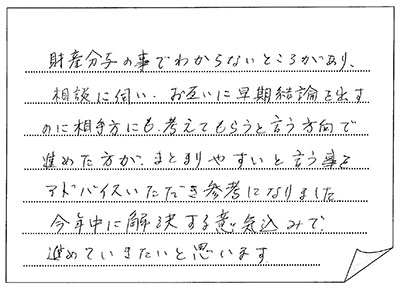 財産分与の事でわからないところがあり、
相談に伺い、お互いに早期結論を出す
のに相手方にも考えてもらうと言う方向で
進めた方が、まとまりやすいと言う事を
アドバイスいただき参考になりました。
今年中に解決する意気込みで、
進めていきたいと思います。